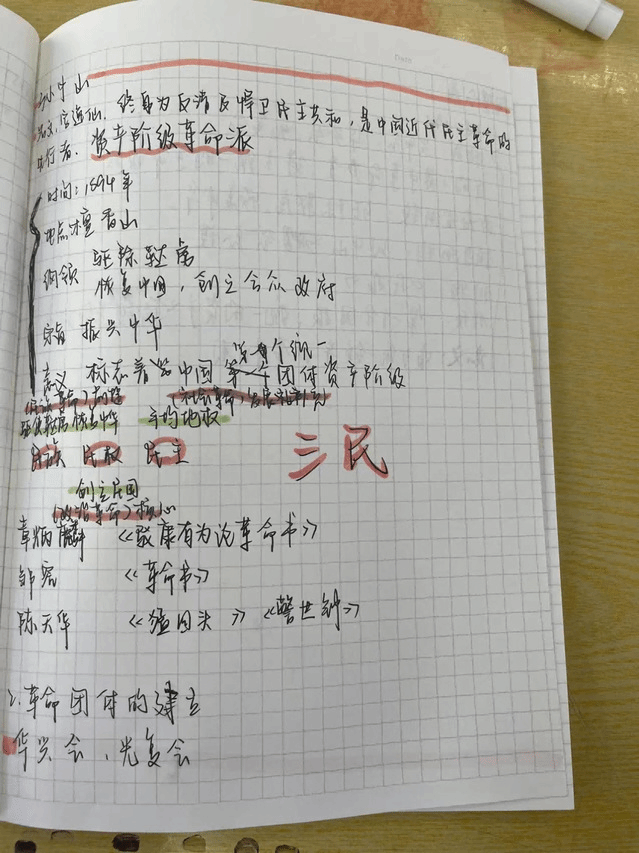 孙中山
名文,字逸仙.终身为反清反捍卫民主共和,是中国近代民主革命的
执行者.资产阶级革命派
时间:1894年
地点:檀香山
纲领 驱除鞑虏
恢复中国,创立合众政府
宗旨 振兴中华
第一个统一
意义 标志着 中国第一个团体资产阶级
(民族革命)前提 (社会革命)
驱除鞑虏 恢复中华 平均地权
民族 民权 民主 三民
创立民国
(政治革命)核心
章炳麟 《驳康有为论革命书》
邹容 《革命书》
陈天华 《猛回头》《警世钟》
2.革命团体的建立
华兴会、光复会